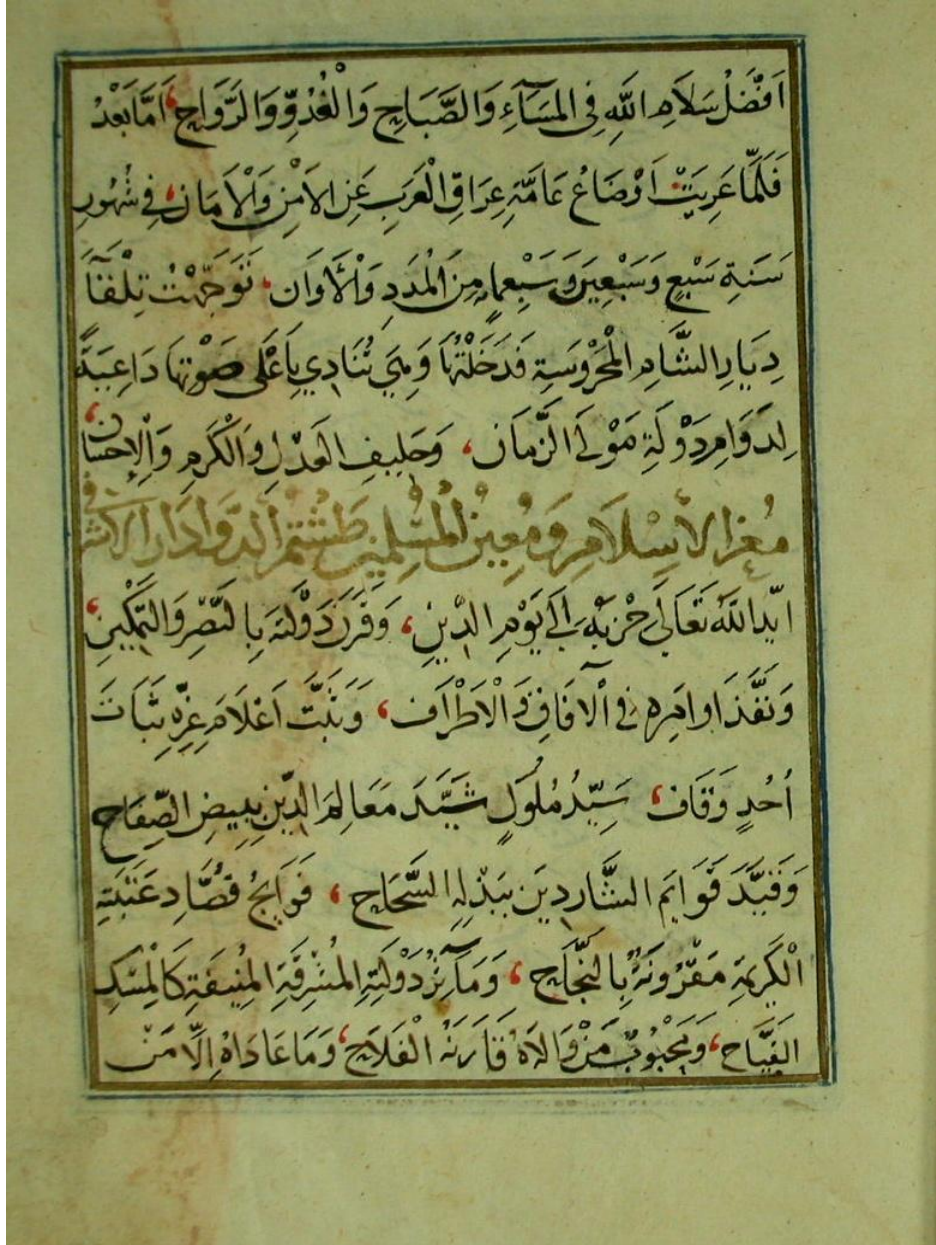 اَفْضَلُ سَلَامِ اللّٰهِ فِی الْمَسَآءِ وَالصَّبَاحِ وَالْغُدُوِّ وَالرَّوَاحِ، اَمَّا بَعْدُ
فَلَمَّا عَرِيَتْ اَوْضَاعُ عَامَّةِ عِرَاقِ الْعَرَبِ عَنِ الْاَمْنِ وَالْاَمَانِ، فِی شُهُورِ
سَنَةِ سَبْعٍ وَسَبْعِينَ وَسَبْعِمِايَةٍ مِنَ الْمُدَدِ وَالْاَوَانِ، تَوَجَّهْتُ تِلْقَآءَ
دِيَارِ الشَّامِ الْمَحْرُوسَةِ فَدَخَلْتُهَا وَهِیَ تُنَادِي بِاَعْلَى صَوْتِهَا دَاعِيَةً
لِدَوَامِ دَوْلَةِ مَوْلَى الزَّمَانِ، وَحَلِيفِ الْعَدْلِ وَالْكَرَمِ وَالْاِحْسَانِ،
مُعِزِّ الْاِسْلَامِ وَمُعِينِ الْمُسْلِمِينَ طَشْتَمُر الدَّوَادَار الْاَشْرَفِي
اَيَّدَ اللّٰهُ تَعَالَى حِزْبَهُ اِلَى يَوْمِ الدِّينِ، وَقَرَنَ دَوْلَتَهُ بِالنَّصْرِ وَالتَّمْكِينِ،
وَنَفَّذَ اَوَامِرَهُ فِي الْآفَاقِ وَالْاَطْرَافِ، وَثَبَّتَ اَعْلَامَ عِزِّهِ ثَبَاتَ
اُحُدٍ وَقَاف، سَيِّدُ مُلُوكٍ شَيَّدَ مَعَالِمَ الدِّينِ بِبِيضِ الصِّفَاحِ
وَقَيَّدَ قَوَايِمَ الشَّارِدِينَ بِبَذْلِهِ السَّحَّاحِ، فَوَايِحُ قُصَّادِ عَتَبَتِهِ
الْكَرِيمَةِ مَقْرُونَةٌ بِالنَّجَاحِ، وَمَآثِرُ دَوْلَتِهِ الْمُشْرِقَةِ الْمُنِيفَةِ كَالْمِسْكِ
الْفَيَّاحِ، وَمَحْبُوبُ مَنْ وَالَاهُ قَارَنَهُ الْفَلَاحُ، وَمَا عَادَاهُ اِلَّا مَنْ